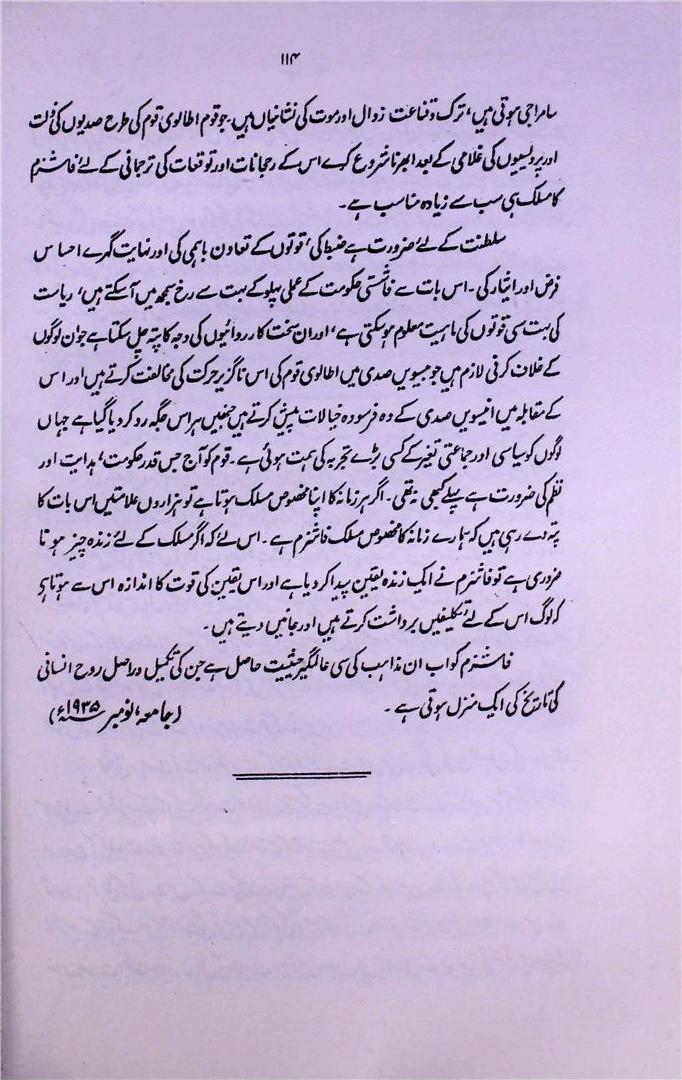 ۱۱۴
سامراجی ہوتی ہیں، ترک و قناعت زوال اور موت کی نشانیاں ہیں۔ جو قوم اطالوی قوم کی طرح صدیوں کی ذلت
اور پردیسیوں کی غلامی کے بعد ابھرنا شروع کرے اس کے رجحانات اور توقعات کی ترجمانی کے لئے فاشزم
کا مسلک ہی سب سے زیادہ مناسب ہے۔
سلطنت کے لئے ضرورت ہے ضبط کی، قوتوں کے تعاون باہمی کی اور نہایت گہرے احساس
فرض اور ایثار کی۔ اس بات سے فاشستی حکومت کے عملی پہلو کے بہت سے رخ سمجھ میں آسکتے ہیں، ریاست
کی بہت سی قوتوں کی ماہیت معلوم ہوسکتی ہے، اور ان سخت کارروائیوں کی وجہ کا پتہ چل سکتا ہے جو ان لوگوں
کے خلاف کرنی لازم ہیں جو بیسویں صدی میں اطالوی قوم کی اس ناگزیر حرکت کی مخالفت کرتے ہیں اور اس
کے مقابلہ میں انیسویں صدی کے وہ فرسودہ خیالات پیش کرتے ہیں جنہیں ہر اس جگہ رد کردیا گیا ہے جہاں
لوگوں کو سیاسی اور جماعتی تغیر کے کسی بڑے تجربہ کی ہمت ہوئی ہے۔ قوم کو آج جس قدر حکومت، ہدایت اور
نظم کی ضرورت ہے پہلے کبھی نہ تھی۔ اگر ہر زمانہ کا اپنا مخصوص مسلک ہوتا ہے تو ہزاروں علامتیں اس بات کا
پتہ دے رہی ہیں کہ ہمارے زمانہ کا مخصوص مسلک فاشزم ہے۔ اس لئے کہ اگر مسلک کے لئے زندہ چیز ہونا
ضروری ہے تو فاشزم نے ایک زندہ یقین پیدا کردیا ہے اور اس یقین کی قوت کا اندازہ اس سے ہوتا ہی
کہ لوگ اس کے لئے تکلیفیں برداشت کرتے ہیں اور جانیں دیتے ہیں۔
فاشزم کو اب ان مذاہب کی سی عالمگیر حیثیت حاصل ہے جن کی تکمیل دراصل روح انسانی
کی تاریخ کی ایک منزل ہوتی ہے۔ (جامعہ، نومبر ۱۹۳۵ء)